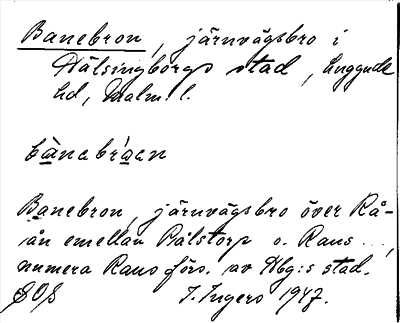 Banebron, järnvägsbro i
Hälsingborgs stad, Luggude
hd, Malm. l.
bànebråen
Banebron, järnvägsbro över Rå-
ån emellan Pålstorp o. Raus ...,
numera Raus förs. av Hbg:s stad.
I. Ingers 1947.